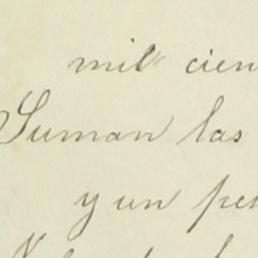 mil cien
Suman las
y un pes